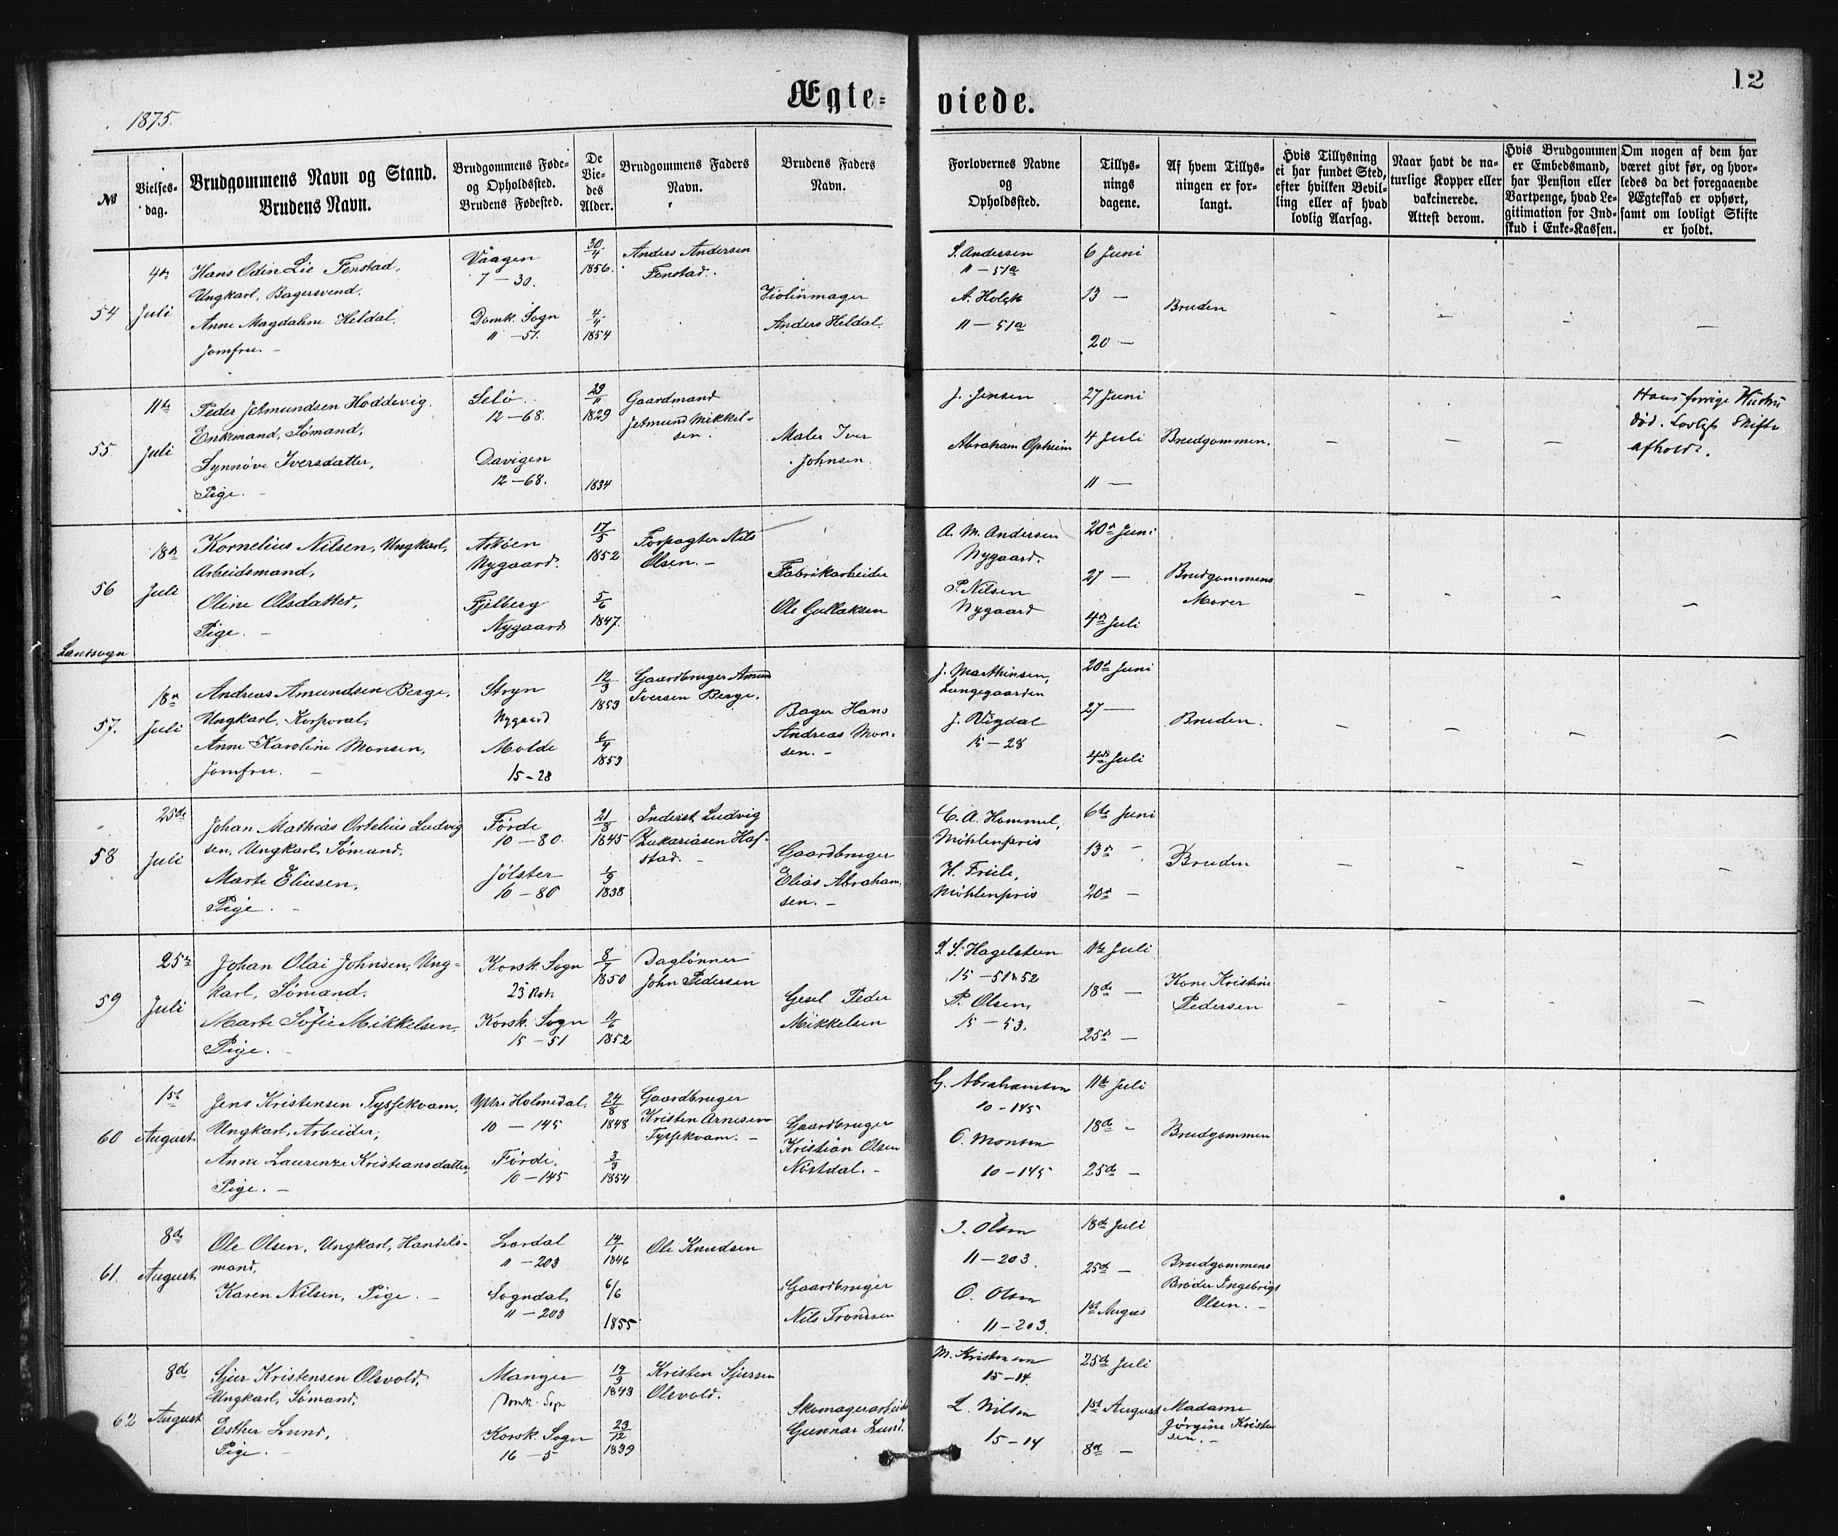 Ægte-
viede.
12
1875.
№
Vielses-
dag.
Brudgommens Navn og Stand.
Brudens Navn.
Brudgommens Føde-
og Opholdsted.
Brudens Fødested.
De
Vie-
des
Alder.
Brudgommens Faders
Navn.
Brudens Faders
Navn.
Forlovernes Navne
og
Opholdsted.
Tillys-
nings
dagene.
Af hvem Tillys-
ningen er for-
langt.
Hvis Tillysning
ei har fundet Sted,
efter hvilken Bevil-
ling eller af hvad
lovlig Aarsag.
Naar havt de na-
turlige Kopper eller
vakcinerede.
Attest derom.
Hvis Brudgommen
er Embedsmand,
har Pension eller
Bartpenge, hvad Le-
gitimation for Ind-
skud i Enke-Kassen.
Om nogen af dem har
været givt før, og hvor-
ledes da det foregaaende
Ægteskab er ophørt,
samt om lovligt Skifte
er holdt.
54
4de
Juli
Hans Odin Lie Fenstad,
Ungkarl, Bagersvend.
Anne Magdalene Heldal.
Jomfru. –
Vaagen
7 – 30.
Domk. Sogn
11 – 51.
30/4
1856.
4/4
1854
Anders Andersen
Fenstad.
Violinmager
Anders Heldal.
S. Andersen
11 – 51a
A. Holck
11 – 51a
6 Juni
13 –
20 –
Bruden
55
11te
Juli
Peder Jetmundsen Hoddevig.
Enkemand, Sømand,
Synnøve Iversdatter,
Pige. –
Selø
12 – 68.
Davigen
12 – 68.
29/11
1829
1834
Gaardmand
Jetmund Mikkel-
sen.
Maler Iver
Johnsen.
J. Jensen
Abraham Opheim
27 Juni
4 Juli
11 –
Brudgommen.
Hans forrige Hustru
død. Lovligt Skifte
afholdt.
56
Landsogn
18de
Juli
Kornelius Nilsen, Ungkarl,
Arbeidsmand,
Oline Olsdatter,
Pige. –
Askøen
Nygaard.
Fjelberg
Nygaard
17/5
1852
5/6
1847.
Forpagter Nils
Olsen. –
Fabrikarbeider
Ole Gullaksen
A. M. Andersen
Nygaard.
P. Nilsen
Nygaard
20de Juni
27 –
4de Juli
Brudgommens
Moder
57.
18de
Juli
Andreas Amundsen Berge,
Ungkarl, Korporal,
Anne Karoline Monsen,
Jomfru. –
Stryn
Nygaard
Molde
15 – 28
12/3
1853
6/4
1853
Gaardbruger Amund
Iversen Berge.
Bager Hans
Andreas Mon-
sen. –
J. Marthinsen,
Langegaarden
15 – 28
20de Juni
27 –
4de Juli
Bruden.
58
25de
Juli
Johan Mathias Ortelius Ludvig
sen, Ungkarl, Sømand.
Marte Eliasen,
Pige. –
Førde
10 – 80.
Jølster
10 – 80
21/8
1845
1838
Inderst Ludvig
Zakariasen Haf-
stad. –
Gaardbruger
Elias Abraham-
sen. –
C. A. Hammel,
Møhlenpris
H. Friele,
Møhlenpris
6te Juni
13de –
20de –
Bruden
59
25de
Juli
Johan Olai Johnsen, Ung-
karl, Sømand.
Marte Sofie Mikkelsen,
Pige. –
Korsk. Sogn
23 Rode
Korsk. Sogn
15 – 51
8/7
1850
11/6
1852
Daglønner
John Pedersen
Gesel Peder
Mikkelsen
S. S. Hagelsteen
15 – 51 & 52
P. Olsen,
15 – 53.
11te Juli
18de –
25de –
Kone Kristine
Pedersen
60
1ste
August
Jens Kristensen Tyssekvam,
Ungkarl, Arbeider,
Anne Laurenze Kristiansdatter,
Pige. –
Ytre Holmedal.
10 – 145
Førde.
10 – 145
24/8
1848
3/3
1854
Gaardbruger
Kristen Arnesen
Tyssekvam. –
Gaardbruger
Kristian Olsen
Nøstdal. –
G. Abrahamsen
10 – 145
O. Monsen
10 – 145
11te Juli
18de –
25de –
Brudgommen
61.
8de
August
Ole Olsen, Ungkarl, Handels-
mand,
Karen Nilsen, Pige. –
Lærdal
11 – 203
Sogndal,
11 – 203
14/7
1846
6/6
1855
Ole Knudsen
Gaardbruger
Nils Trondsen
I. Olsen
11 – 203.
O. Olsen
11 – 203.
18de Juli
25de –
1ste Augus
Brudgommens
Broder Ingebrigt
Olsen. –
62
8de
August
Sjur Kristensen Olsvold,
Ungkarl, Sømand,
Esther Lund,
Pige. –
Manger
Domk. Sogn
Korsk. Sogn
16 – 5
19/9
1843
23/12
1839
Kristen Sjursen
Olsvold.
Skomagerarbeider
Gunnar Lund.
M. Kristensen
15 – 14.
L. Nilsen
15 – 14
25de Juli
1ste August
8de –
Madame
Jørgine Kristen
sen. –